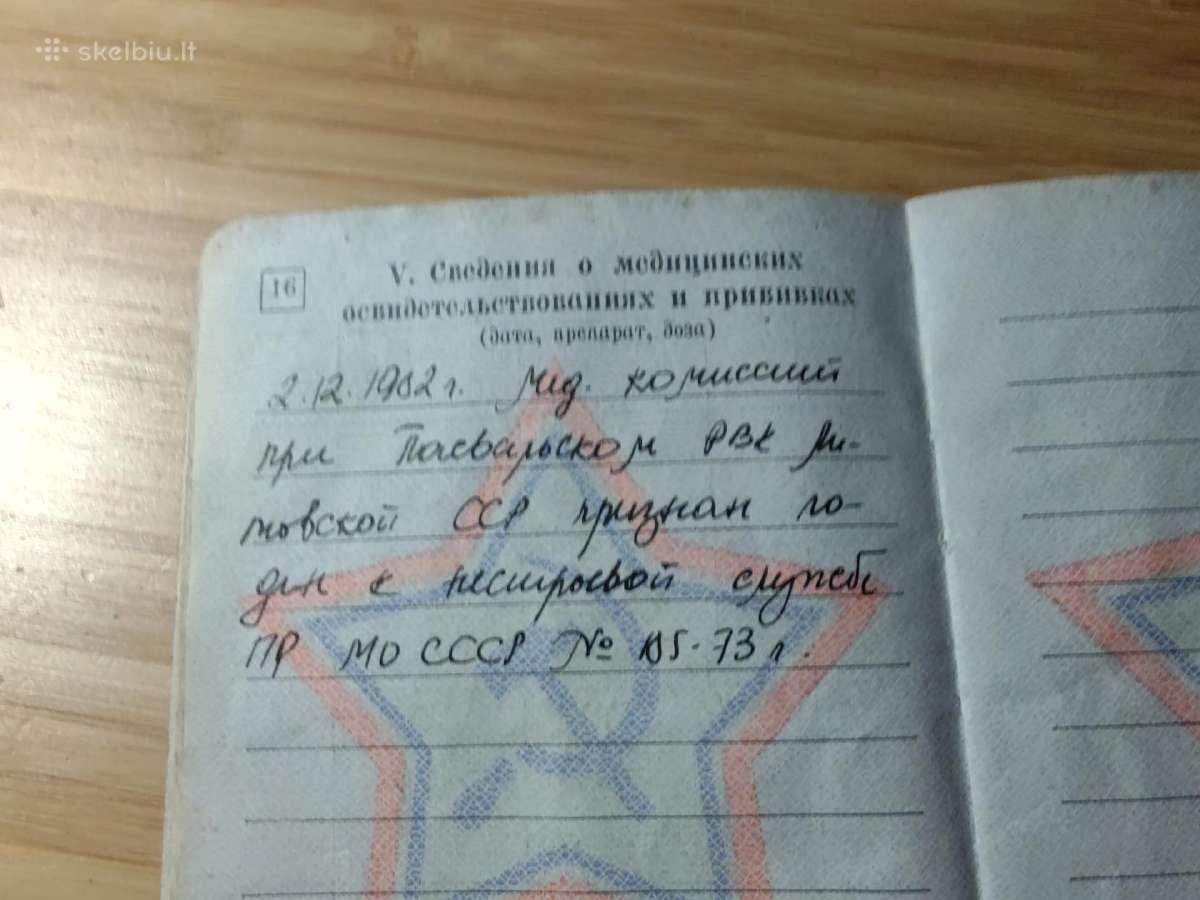 skelbiu.lt
16
V. Сведения о медицинских
освидетельствованиях и прививках
(дата, препарат, доза)
2.12.1982 г. Мед. комиссий
при Пасвальском РВК Ли-
товской ССР признан го-
ден к нестроевой службе
ПР МО СССР № 185-73 г.